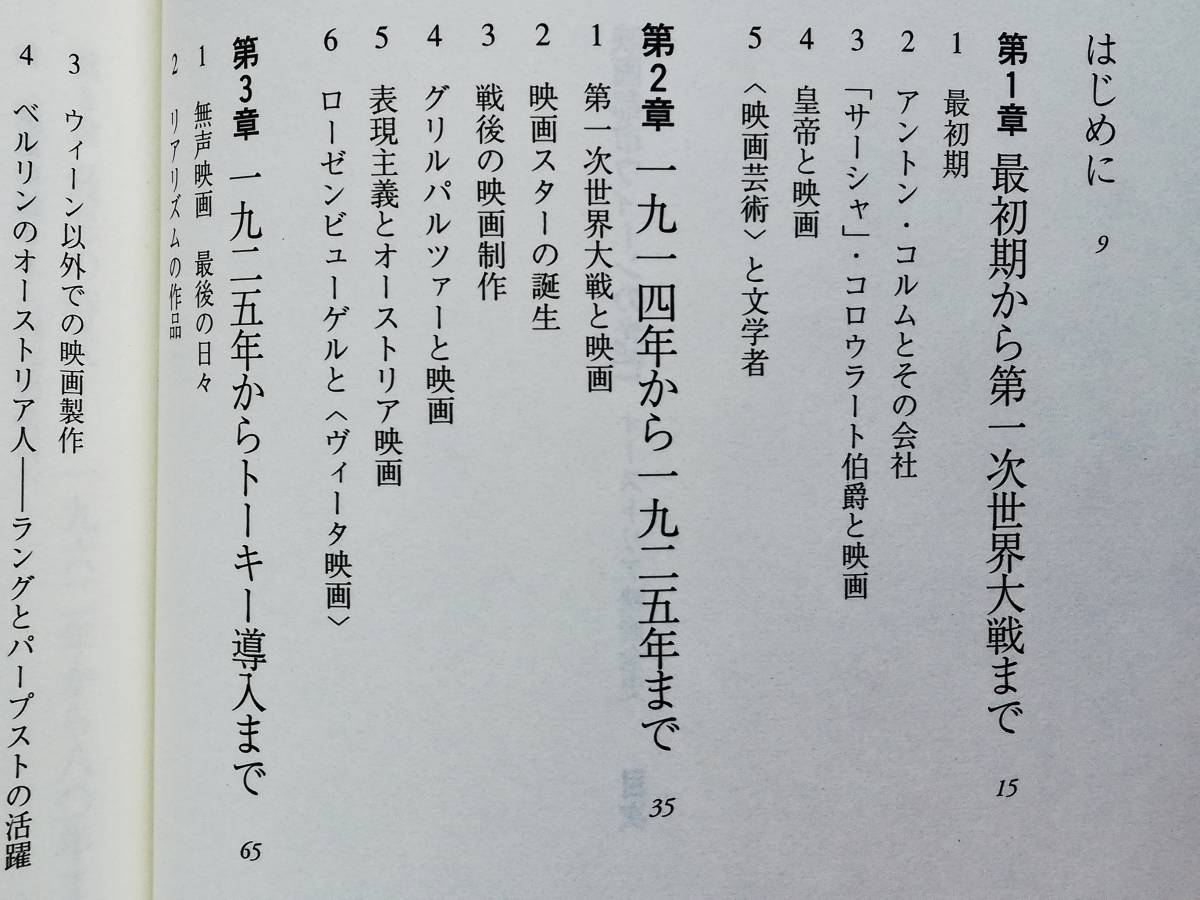 はじめに 9
第1章 最初期から第一次世界大戦まで 15
1 最初期
2 アントン・コルムとその会社
3 「サーシャ」・コロウラート伯爵と映画
4 皇帝と映画
5 〈映画芸術〉と文学者
第2章 一九一四年から一九二五年まで 35
1 第一次世界大戦と映画
2 映画スターの誕生
3 戦後の映画制作
4 グリルパルツァーと映画
5 表現主義とオーストリア映画
6 ローゼンビューゲルと〈ヴィータ映画〉
第3章 一九二五年からトーキー導入まで 65
1 無声映画 最後の日々
2 リアリズムの作品
3 ウィーン以外での映画製作
4 ベルリンのオーストリア人――ラングとパープストの活躍